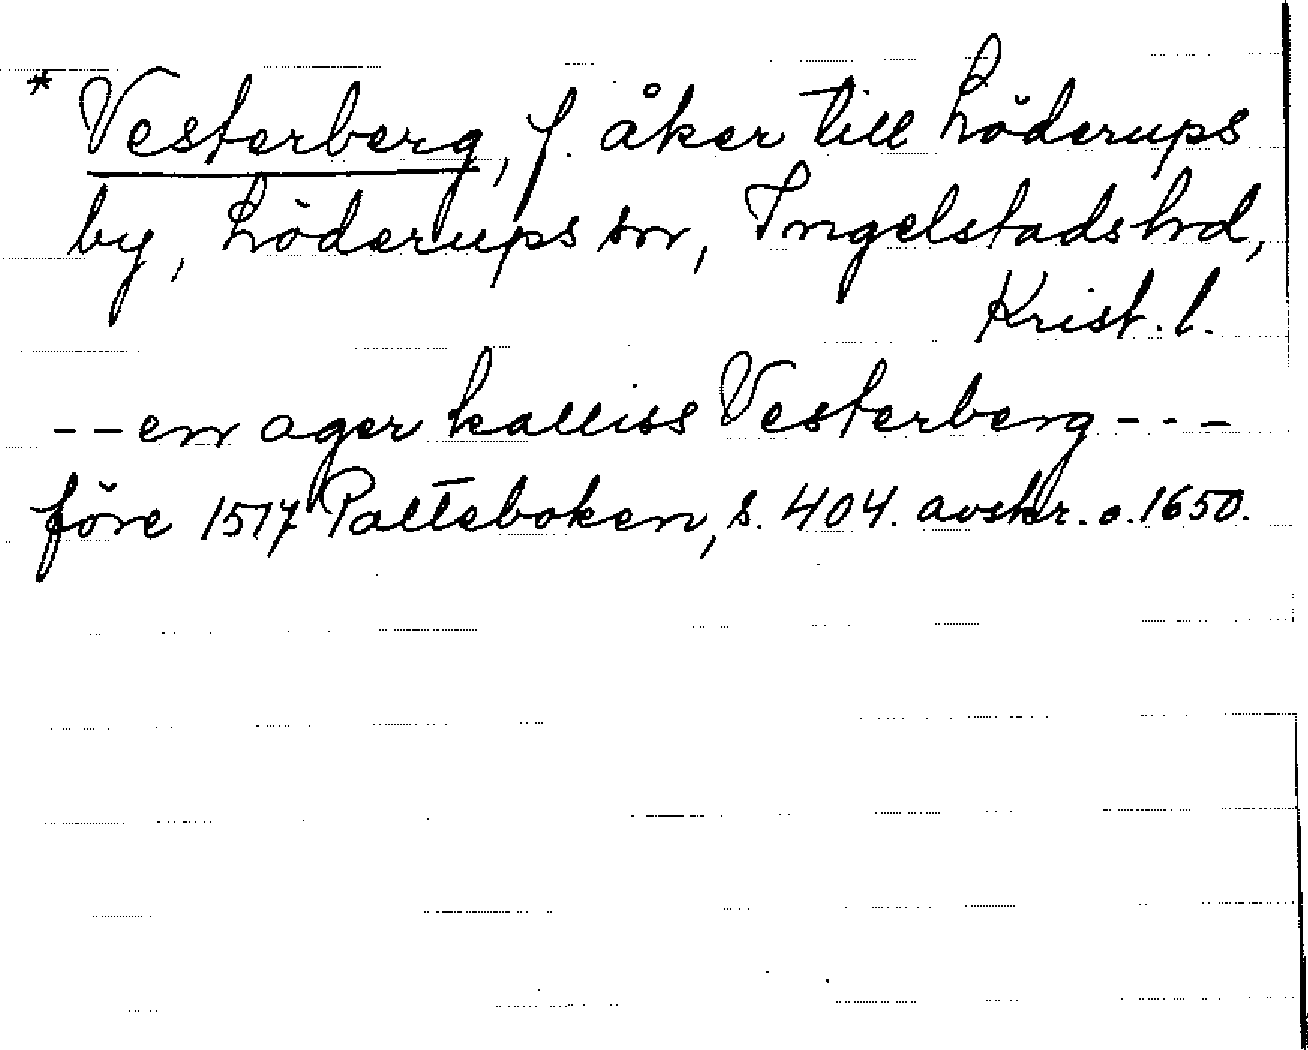 * Vesterberg, f. åker till Löderups
by, Löderups sn, Ingelstads hd,
Krist. l.
-- en ager kalliss Vesterberg ---
före 1517 Palteboken, s. 404. avskr. o. 1650.